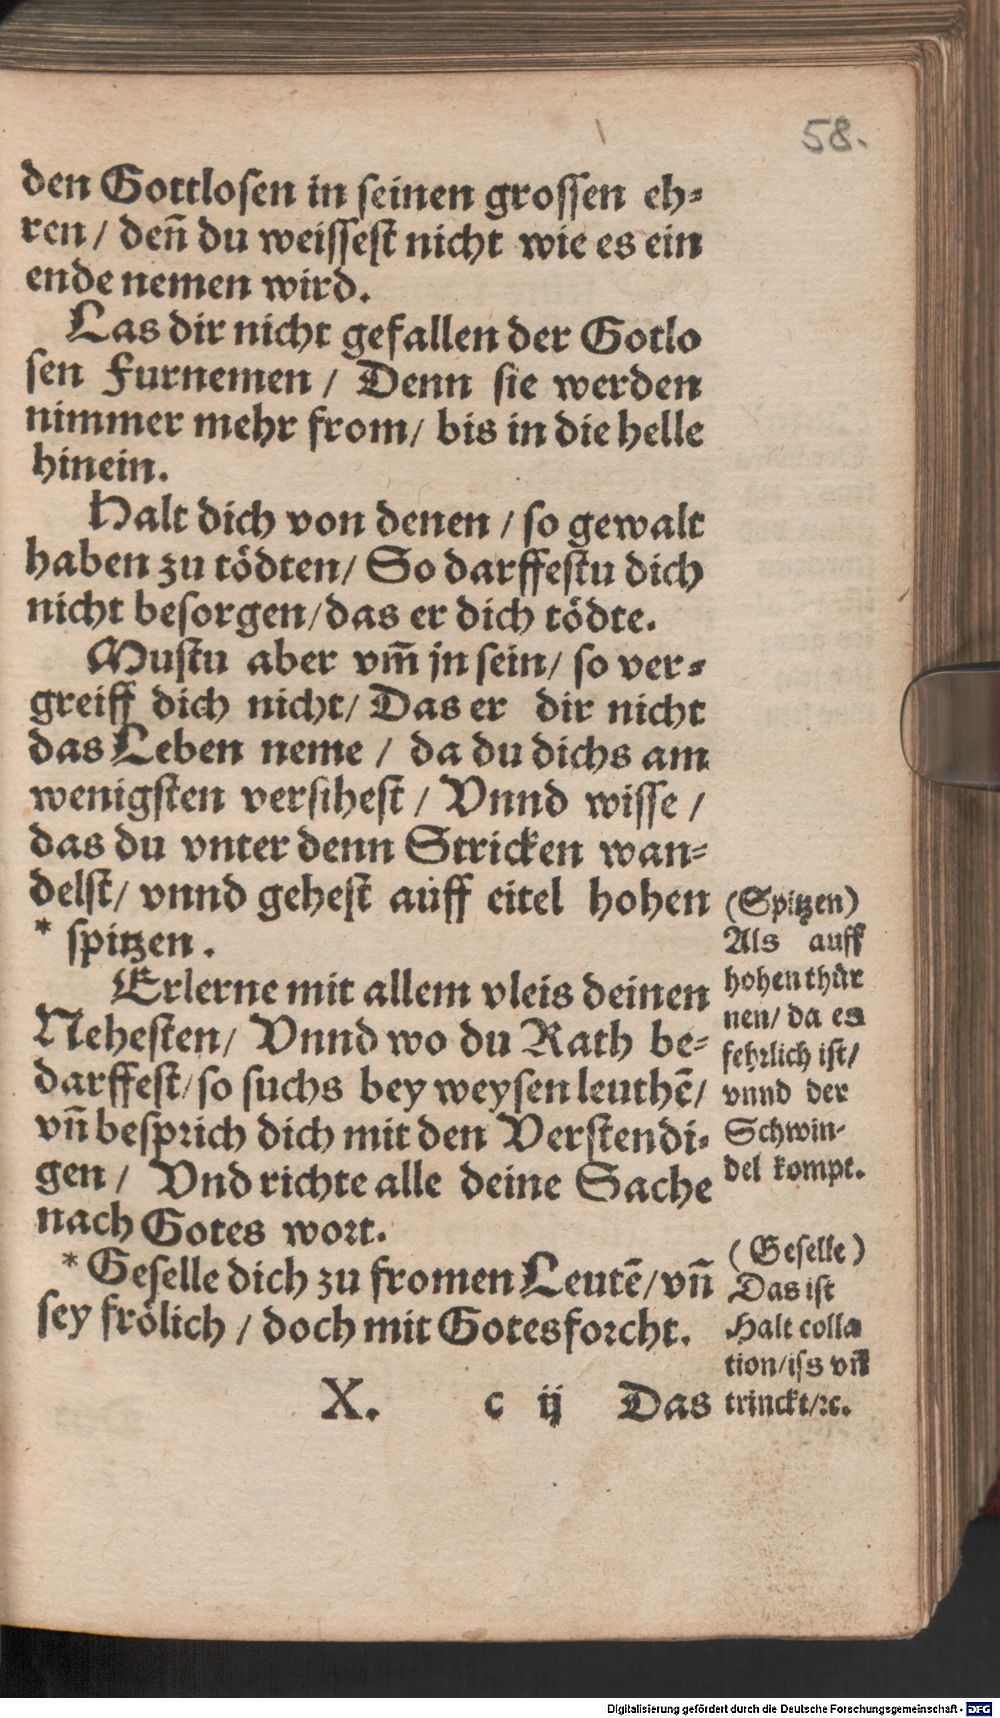 58.
den Gottlosen in seinen grossen eh⸗
ren / deñ du weissest nicht wie es ein
ende nemen wird.
Las dir nicht gefallen der Gotlo
sen Furnemen / Denn sie werden
nimmer mehr from / bis in die helle
hinein.
Halt dich von denen / so gewalt
haben zu tödten / So darffestu dich
nicht besorgen / das er dich tödte.
Mustu aber vm̃ jn sein / so ver⸗
greiff dich nicht / Das er dir nicht
das Leben neme / da du dichs am
wenigsten versihest / Vnnd wisse /
das du vnter denn Stricken wan⸗
delst / vnnd gehest auff eitel hohen
* spitzen.
Erlerne mit allem vleis deinen
Nehesten / Vnnd wo du Rath be⸗
darffest / so suchs bey weysen leuthẽ /
vñ besprich dich mit den Verstendi⸗
gen / Vnd richte alle deine Sache
nach Gotes wort.
* Geselle dich zu fromen Leutẽ / vñ
sey frölich / doch mit Gotesforcht.
(Spitzen)
Als auff
hohen thür
nen / da es
fehrlich ist /
vnnd der
Schwin⸗
del kompt.
(Geselle)
Das ist
Halt colla
tion / iss vñ
trinckt / ꝛc.
X. c ij Das
Digitalisierung gefördert durch die Deutsche Forschungsgemeinschaft - DFG